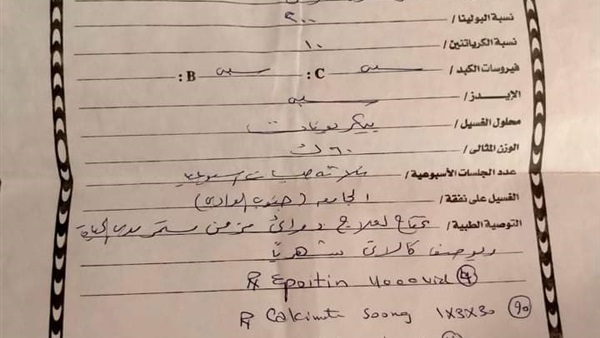 نسبة البولينا / ٢٠٠
نسبة الكرياتنين / ١٠
فيروسات الكبد / C : سلبى B : سلبى
الإيدز / سلبى
محلول الغسيل / بيكربونات
الوزن المثالى / ٦٠ ك
عدد الجلسات الأسبوعية / ثلاثة جلسات اسبوعيا
الغسيل على نفقة / الجامعه (جنوب الوادى)
التوصية الطبية / يحتاج لعلاج دوائى مزمن مستمر مدى الحياة
ويوصف كالاتى شهريًا
Epoitin 4000
1x3x30 90